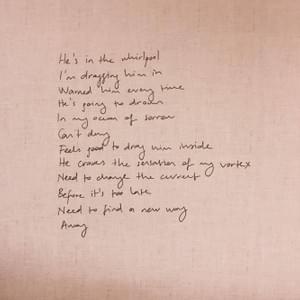 He's in the whirlpool
I'm dragging him in
Warned him every time
He's going to drown
In my ocean of sorrow
Can't deny
Feels good to drag him inside
He craves the sensation of my vortex
Need to change the current
Before it's too late
Need to find a new way
Away